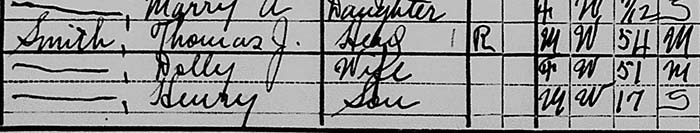 Marry A Daughter F W 12 S
Smith, Thomas J. Head 1 R M W 54 M
——, Dolly Wife F W 51 M
——, Henry Son M W 17 S